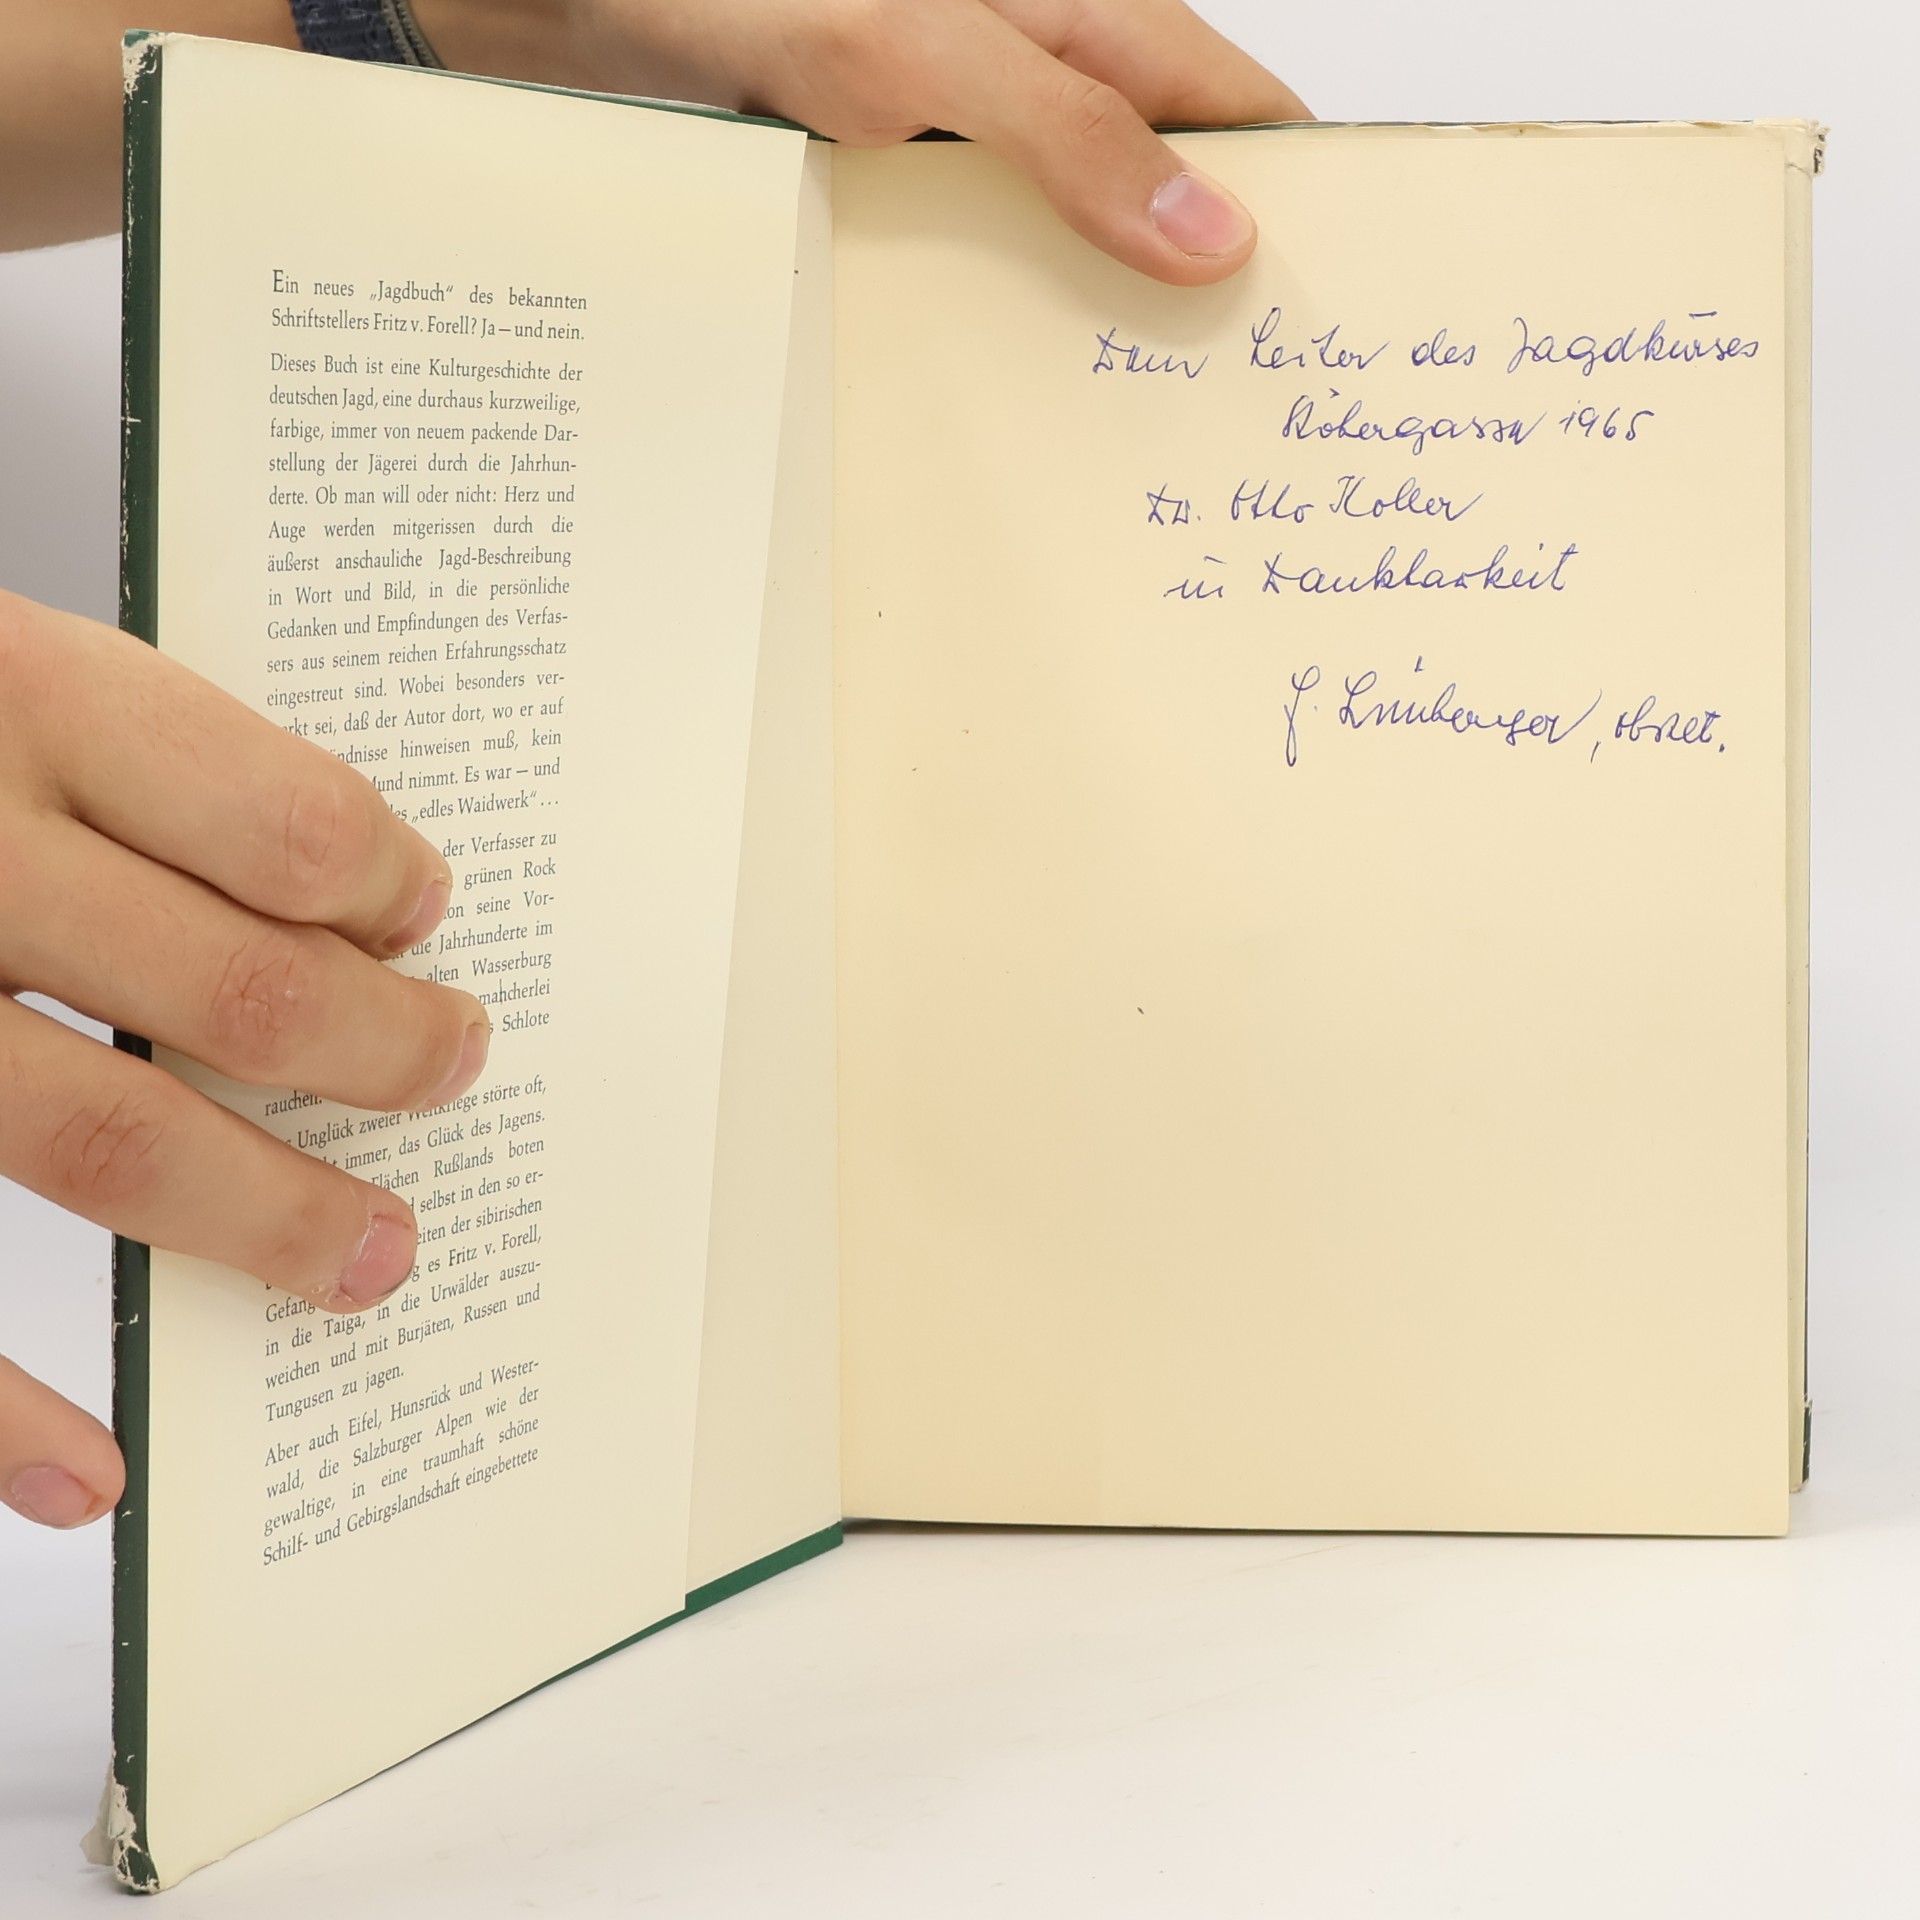 Ein neues „Jagdbuch“ des bekannten
Schriftstellers Fritz v. Forell? Ja – und nein.
Dieses Buch ist eine Kulturgeschichte der
deutschen Jagd, eine durchaus kurzweilige,
farbige, immer von neuem packende Dar-
stellung der Jägerei durch die Jahrhun-
derte. Ob man will oder nicht: Herz und
Auge werden mitgerissen durch die
äußerst anschauliche Jagd-Beschreibung
in Wort und Bild, in die persönliche
Gedanken und Empfindungen des Verfas-
sers aus seinem reichen Erfahrungsschatz
eingestreut sind. Wobei besonders ver-
merkt sei, daß der Autor dort, wo er auf
hinweisen muß, kein
Mund nimmt. Es war – und
„edles Waidwerk“ ...
der Verfasser zu
grünen Rock
seine Vor-
die Jahrhunderte im
alten Wasserburg
mancherlei
Schlote
rauchen.
Unglück zweier Weltkriege störte oft,
immer, das Glück des Jagens.
Flächen Rußlands boten
selbst in den so er-
der sibirischen
es Fritz v. Forell,
in die Urwälder auszu-
in die Taiga,
weichen und mit Burjäten, Russen und
Tungusen zu jagen.
Aber auch Eifel, Hunsrück und Wester-
wald, die Salzburger Alpen wie der
gewaltige, in eine traumhaft schöne
Schilf- und Gebirgslandschaft eingebettete
Dem Leiter des Jagdkurses
Stöbergasse 1965
Dr. Otto Koller
in Dankbarkeit